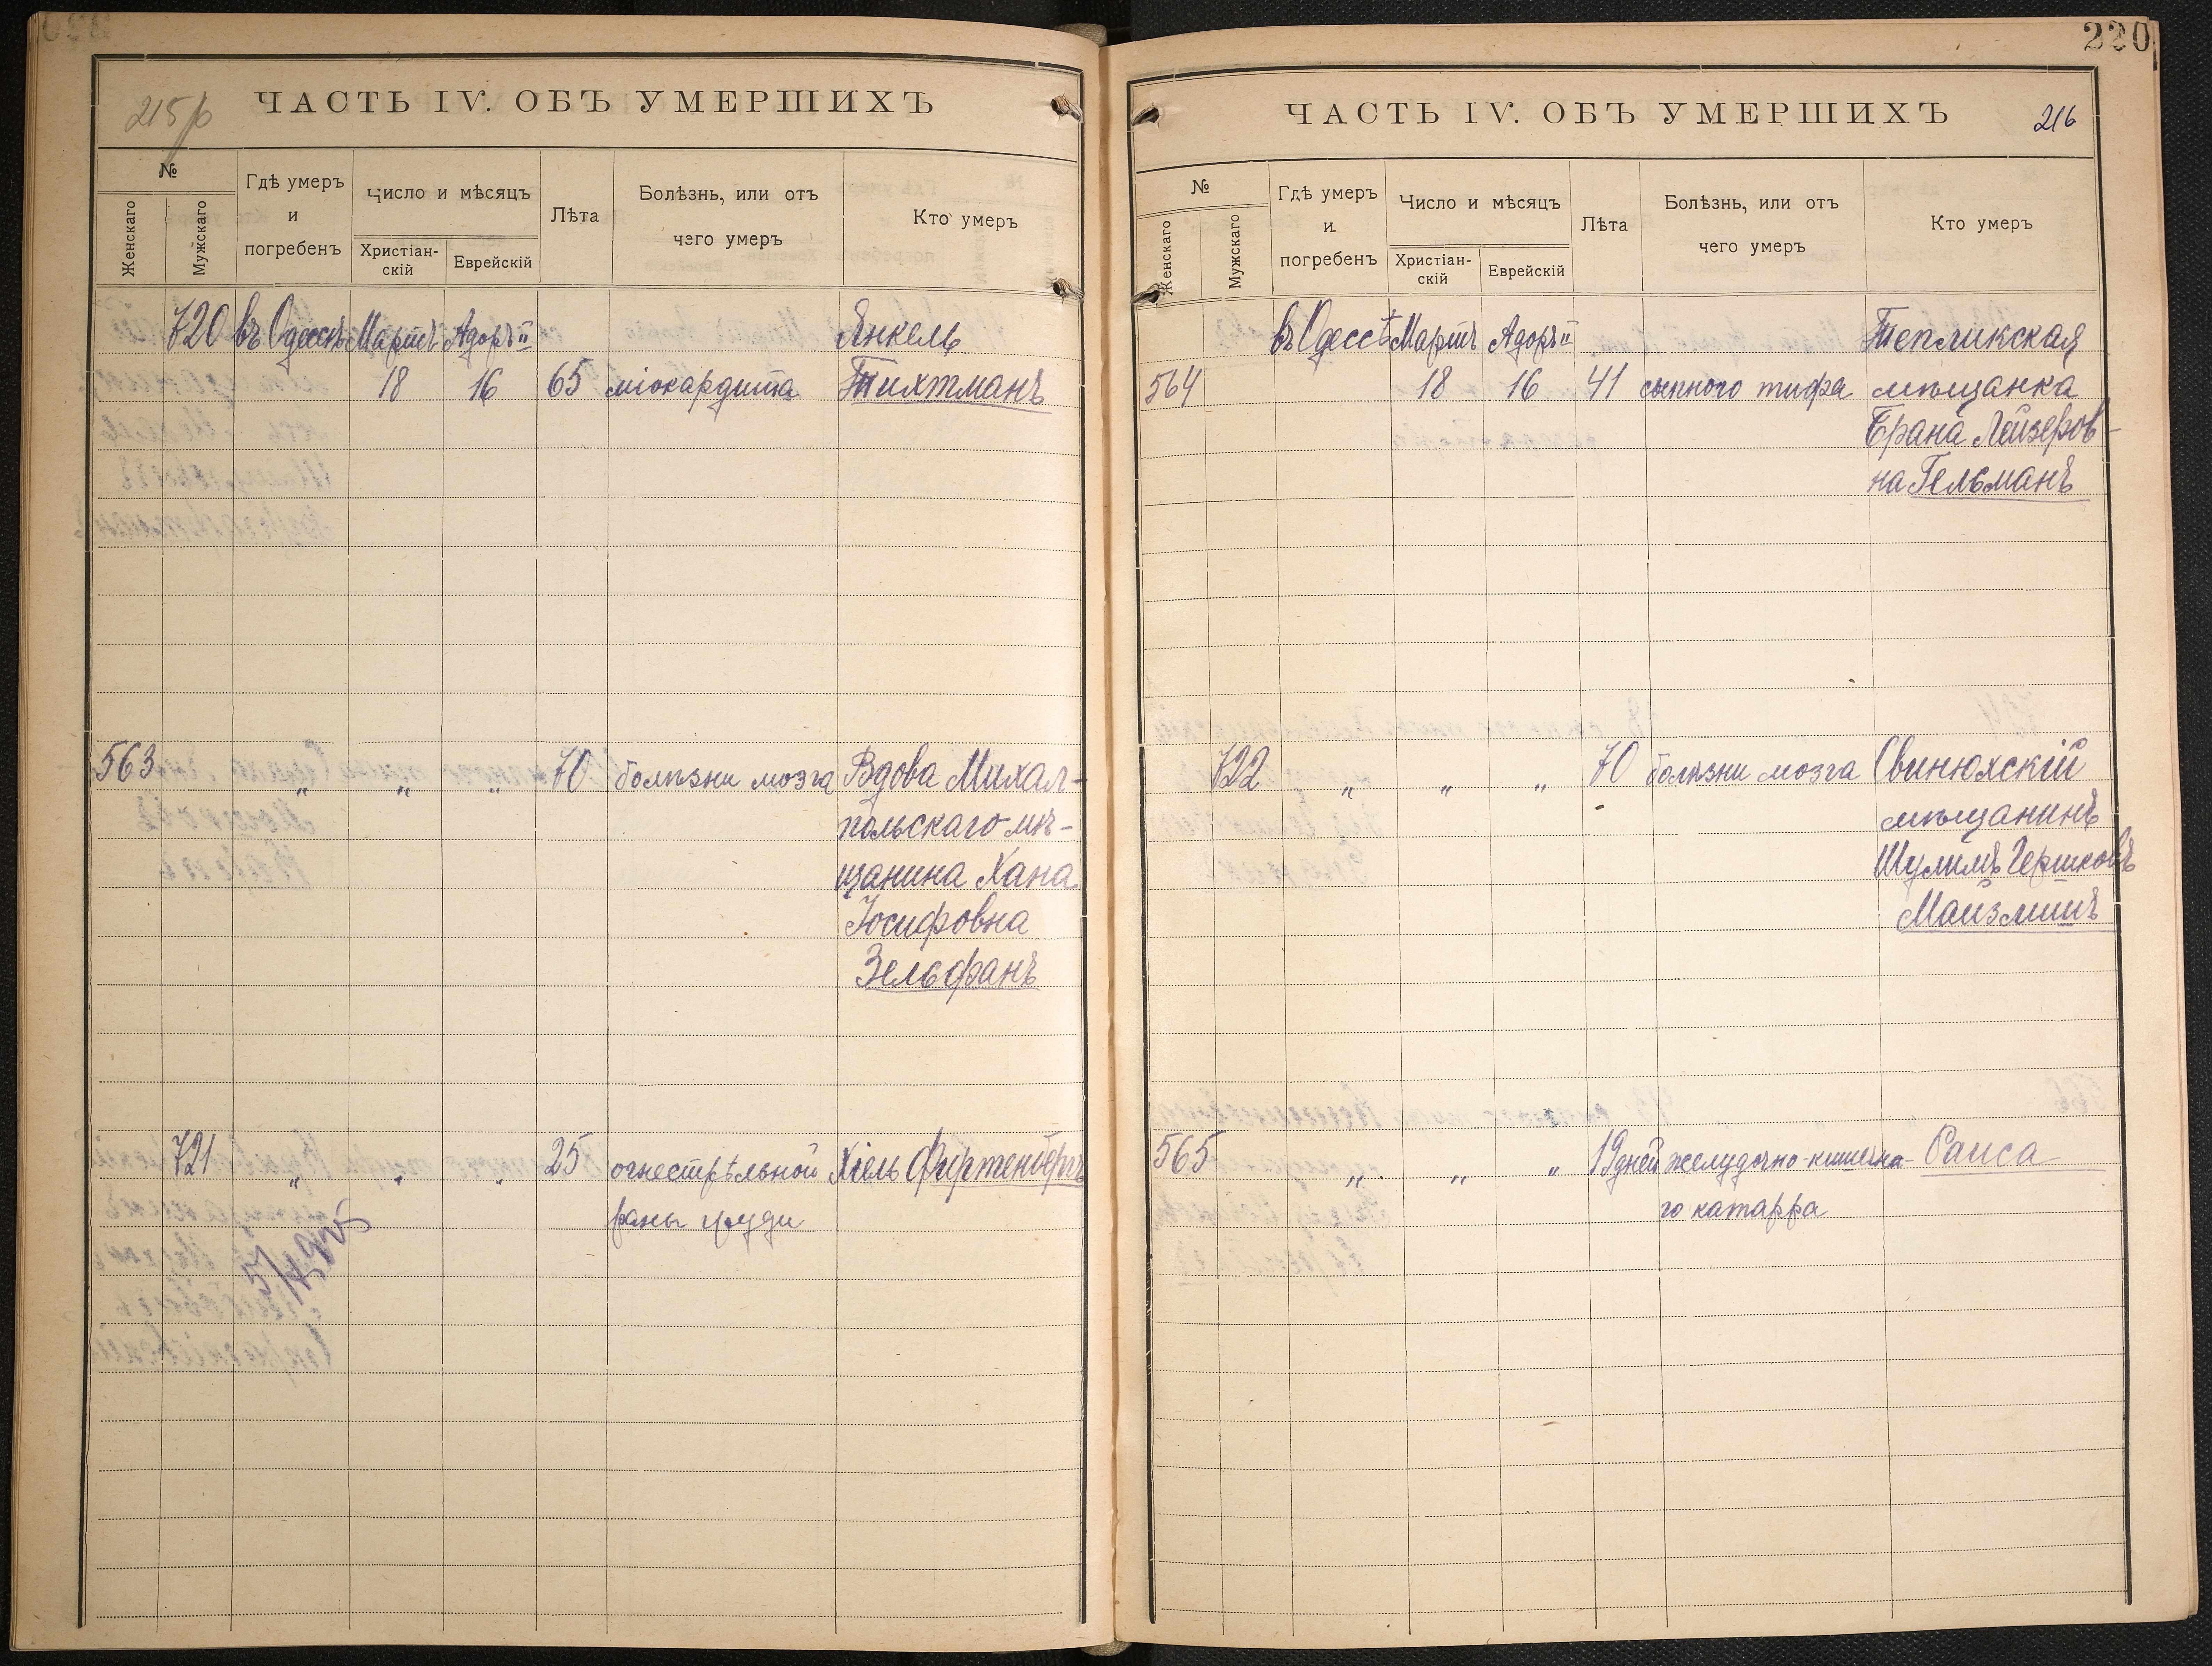 215 р
ЧАСТЬ IV. ОБЪ УМЕРШИХЪ
№
Женскаго
Мужскаго
Гдѣ умеръ
и
погребенъ
Число и мѣсяцъ
Христіан-
скій
Еврейскій
Лѣта
Болѣзнь, или отъ
чего умеръ
Кто умеръ
720 въ Одессѣ Мартъ Адоръ II Янкель
18 16 65 міокардита Тихтманъ
563 „ „ „ 70 болѣзни мозга Вдова Михал-
польскаго мѣ-
щанина Хана
Іосифовна
Зельфанъ
721 „ „ „ 25 огнестрѣльной Хіель Фиртенбергъ
раны груди
220
ЧАСТЬ IV. ОБЪ УМЕРШИХЪ
216
№
Женскаго
Мужскаго
Гдѣ умеръ
и
погребенъ
Число и мѣсяцъ
Христіан-
скій
Еврейскій
Лѣта
Болѣзнь, или отъ
чего умеръ
Кто умеръ
въ Одессѣ Мартъ Адоръ II Тепликская
564 18 16 41 сыпного тифа мѣщанка
Брана Лейзеров-
на Гельманъ
722 „ „ „ 70 болѣзни мозга Свинюхскій
мѣщанинъ
Шулимъ Гершковъ
Майзлишъ
565 „ „ „ 19 дней желудочно-кишечна- Саиса
го катарра